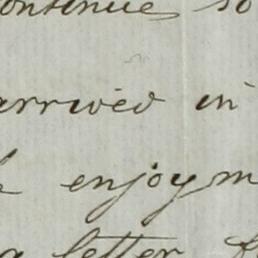 ontinue so
arrived in
enjoym
a letter